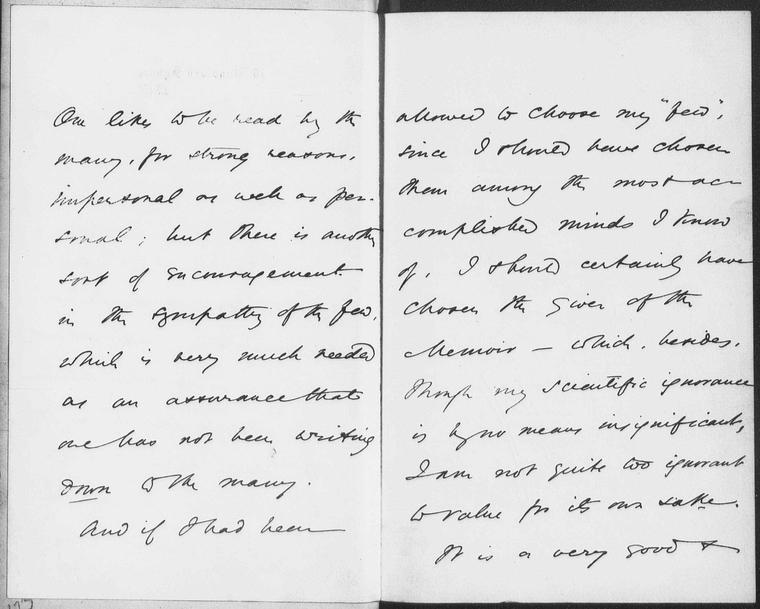 One likes to be read by the
many, for strong reasons,
impersonal as well as per-
sonal; but there is another
sort of encouragement
in the sympathy of the few,
which is very much needed
as an assurance that
one has not been writing
down to the many.
And if I had been
allowed to choose my "few",
since I should have chosen
them among the most ac-
complished minds I know
of, I should certainly have
chosen the Giver of the
Memoir – which, besides,
though my scientific ignorance
is by no means insignificant,
I am not quite too ignorant
to value for its own sake.
It is a very good &